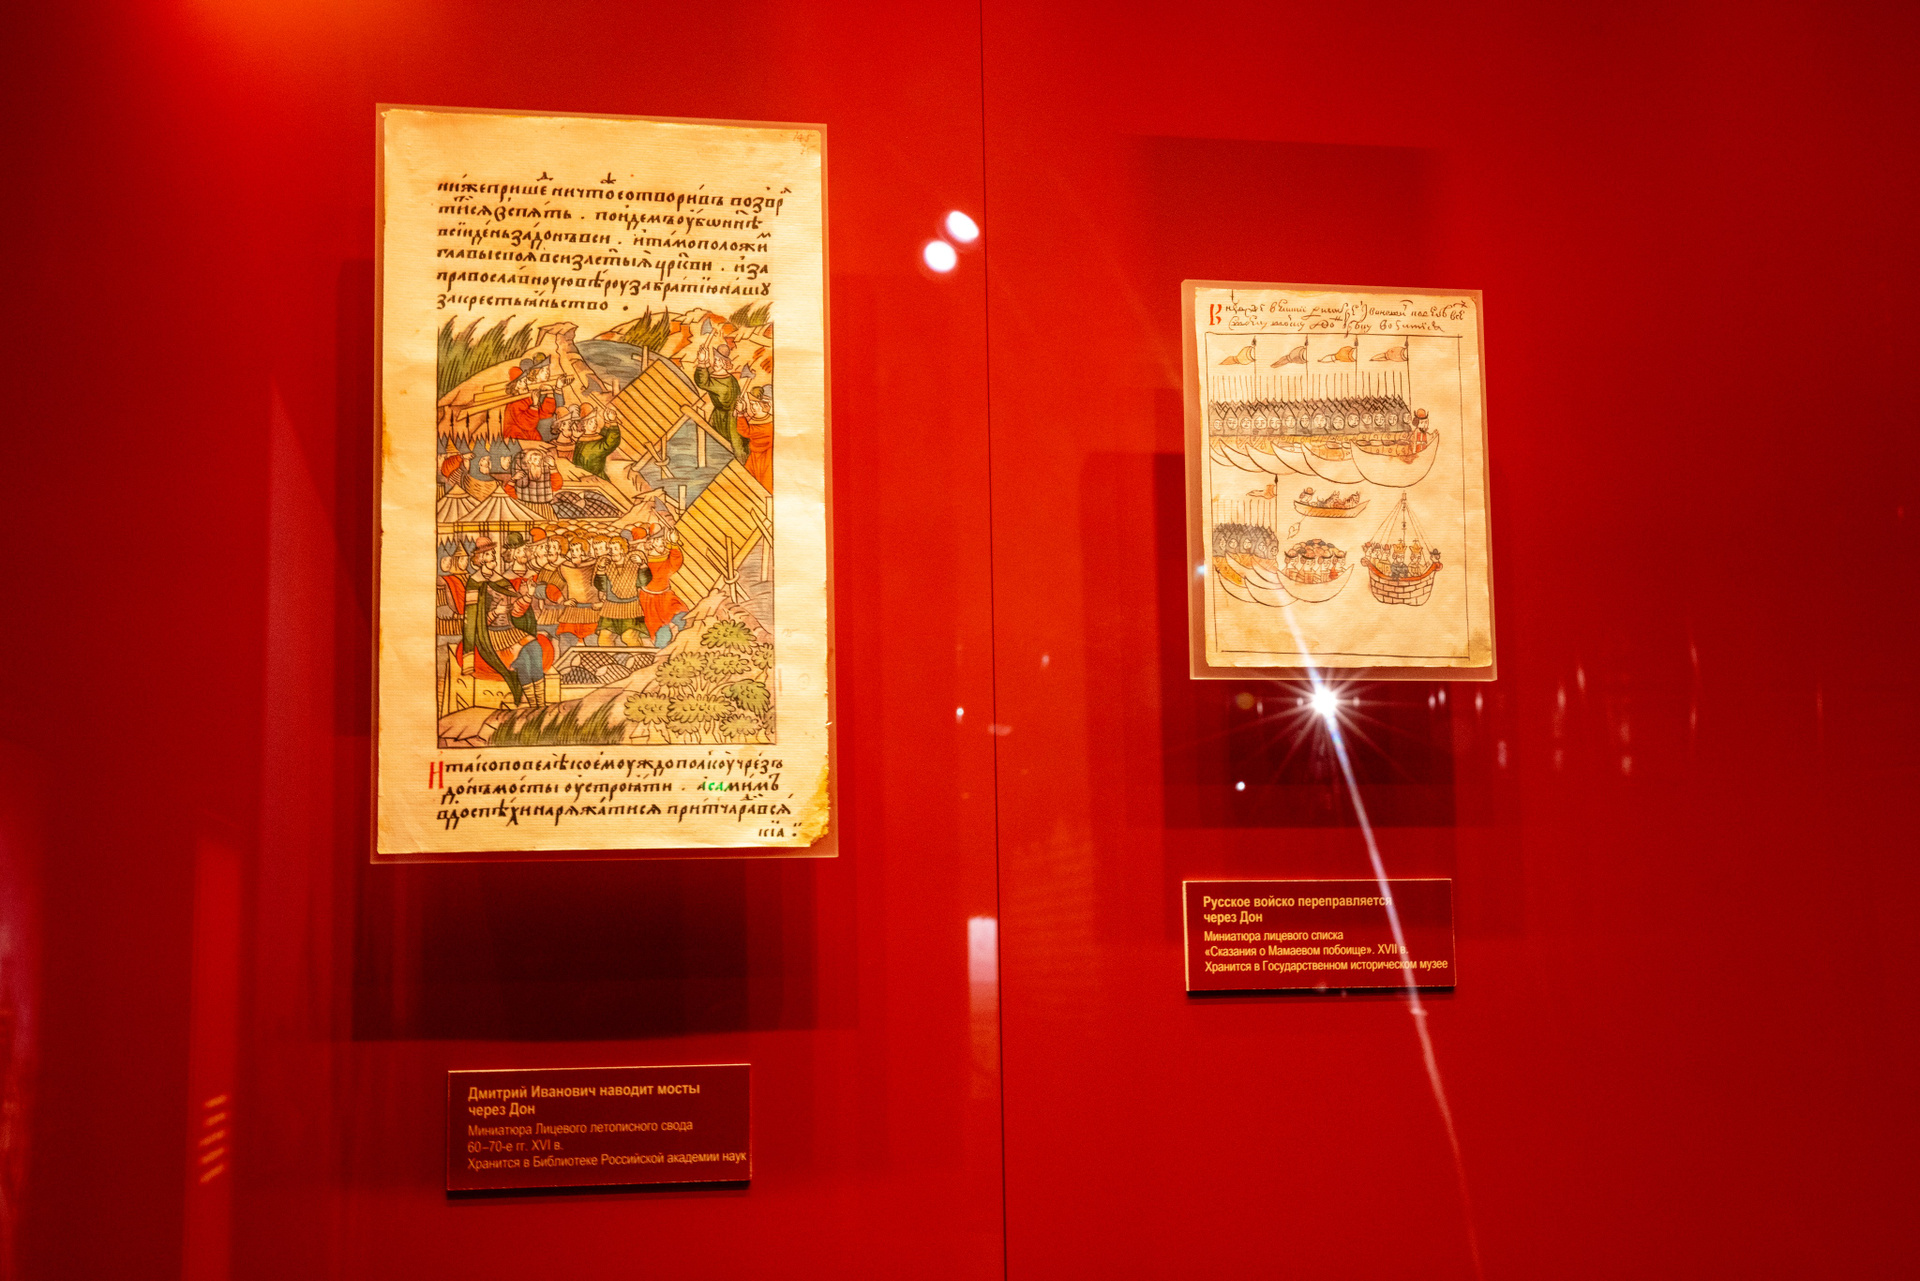 ниже прише ничто сотворивъ возвр
тисѧ вспѧть . поидемъ оубш ннѣ
всии день за донъ вси . и тамо положи
главы своѧ вси за с͠тыѧ цр҃кви . и за
православною вѣроу за братию нашу
за крестьꙗньство .
И тако повелѣ коемоуждо полкоу чрез
донъ мосты оустроити . а самимъ
в доспѣхи нарѧжатисѧ притчаравсѧ
кїа
Дмитрий Иванович наводит мосты
через Дон
Миниатюра Лицевого летописного свода
60–70-е гг. XVI в.
Хранится в Библиотеке Российской академии наук
Русское войско переправляется
через Дон
Миниатюра лицевого списка
«Сказания о Мамаевом побоище». XVII в.
Хранится в Государственном историческом музее